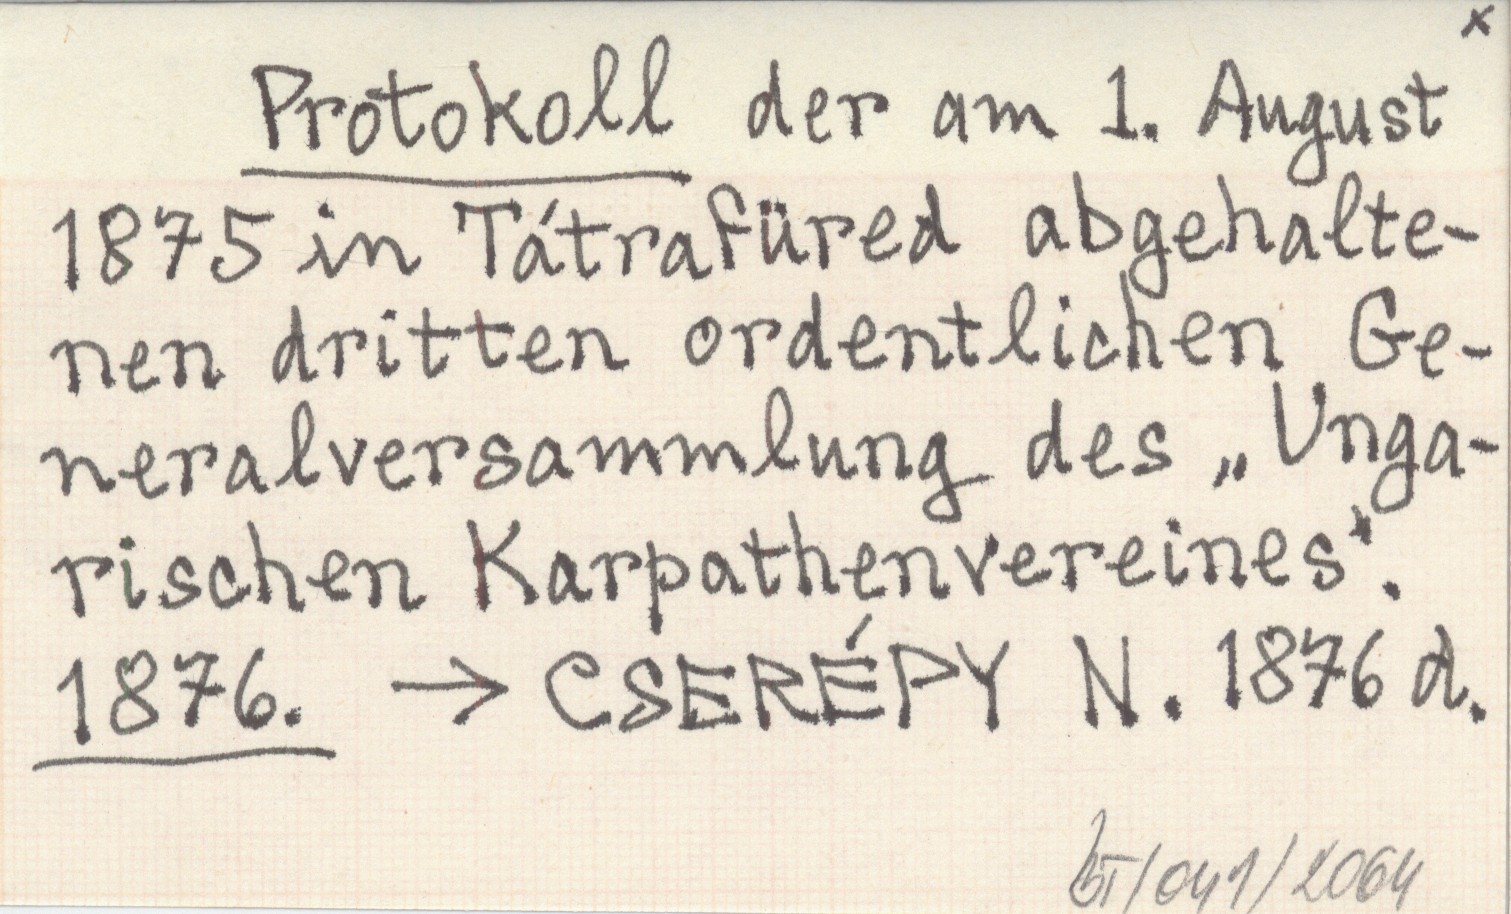 x
Protokoll der am 1. August
1875 in Tátrafüred abgehalte-
nen dritten ordentlichen Ge-
neralversammlung des „Unga-
rischen Karpathenvereines".
1876. → CSERÉPY N. 1876 d.
/041/2064